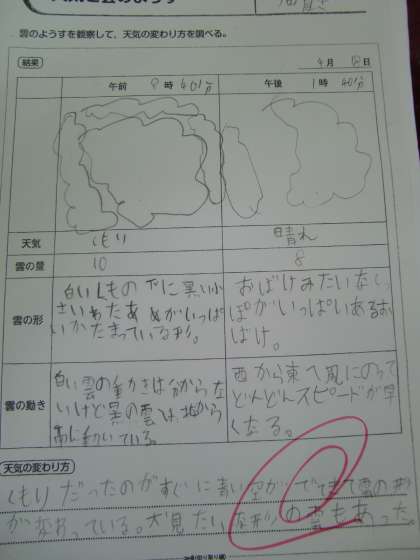 雲のようすを観察して、天気の変わり方を調べる。
結果
4月 日
午前 8時40分
午後 1時40分
天気 くもり 晴れ
雲の量 10 8
雲の形
白いくもの下に黒い小
さいわたあめがいっぱ
いかたまっている形。
おばけみたいなしっ
ぽがいっぱいあるお
ばけ。
雲の動き
白い雲の動きは分からな
いけど黒の雲は北から
南に動いている。
西から東へ風にのって
どんどんスピードが早
くなる。
天気の変わり方
くもりだったのがすぐに青い空がでてきて雲の形
がかわっている。